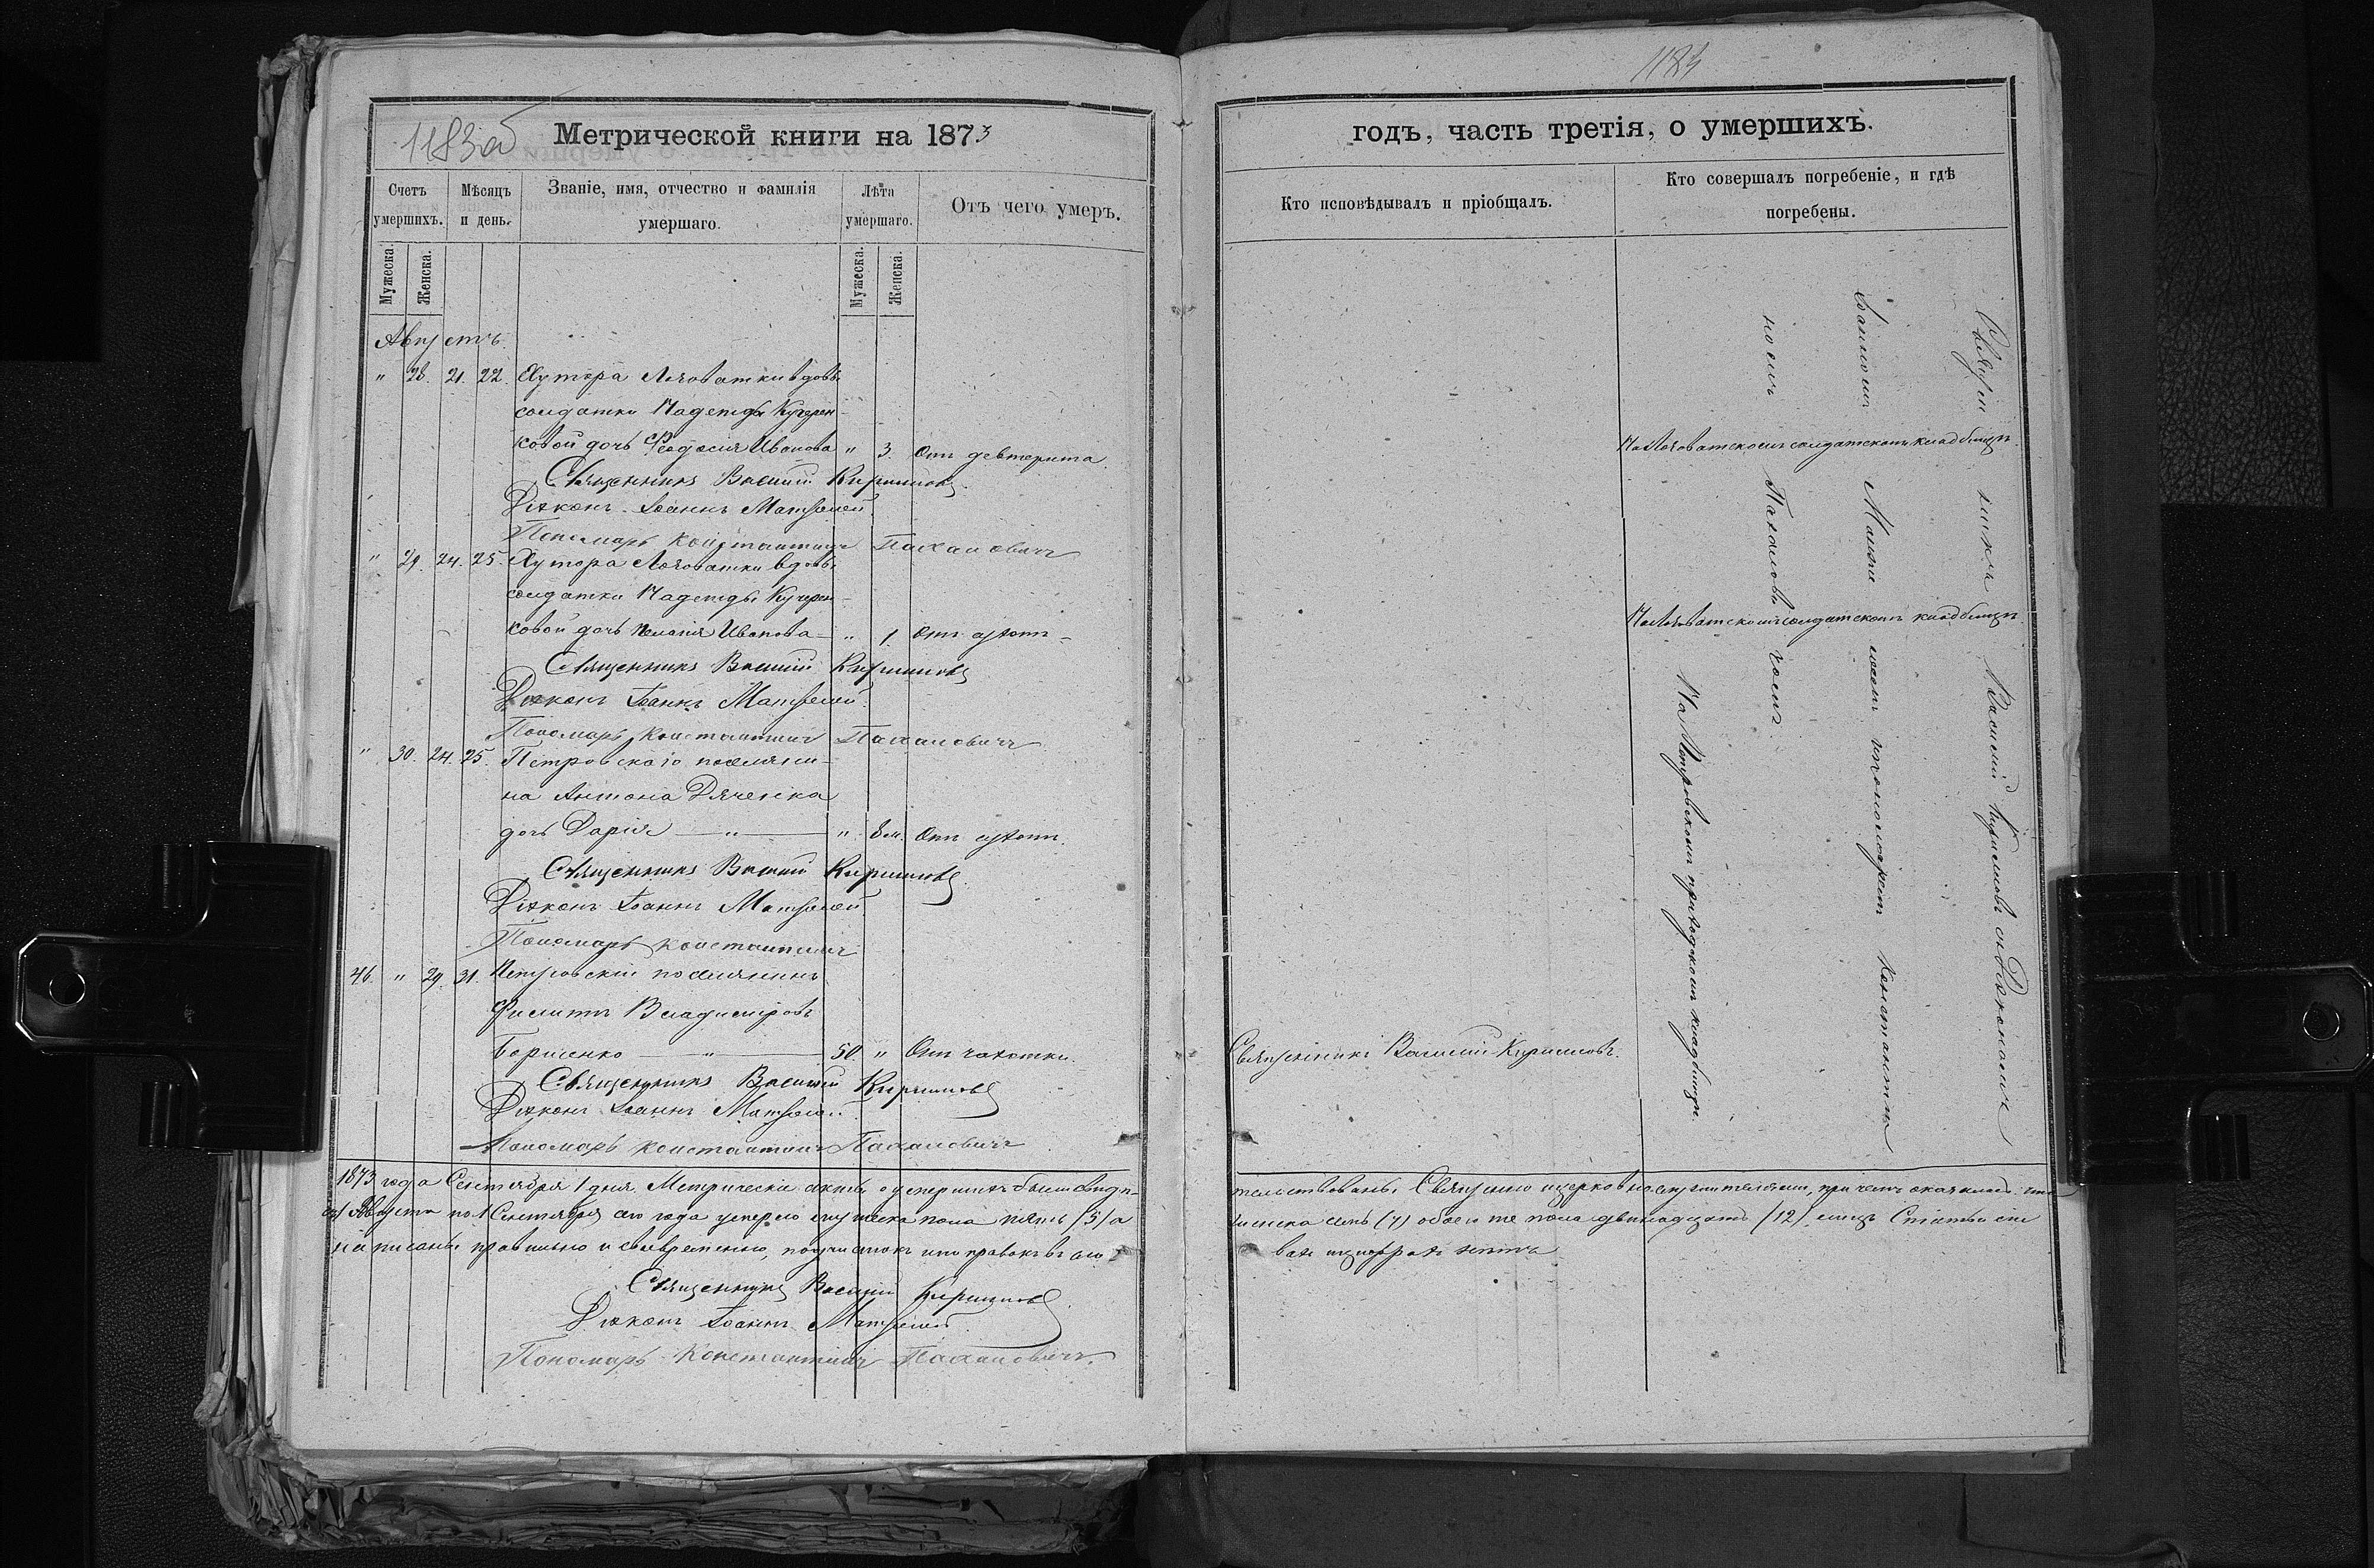 1183об
Метрической книги на 1873
Счетъ умершихъ.
Мѣсяцъ и день.
Званіе, имя, отчество и фамилія умершаго.
Лѣта умершаго.
Отъ чего умеръ.
Мужеска.
Женска.
Мужеска.
Женска.
Августъ.
" 28. 21. 22. Хутора вдовы
солдатки Надежды Кучерен-
ковой дочь Феодосія Иванова " 3. Отъ дифтерита.
Священникъ Василій Кириловъ
Діаконъ Іоаннъ
Пономарь Константинъ
" 29. 24. 25. Хутора вдовы
солдатки Надежды Кучерен-
ковой дочь Пелагія Иванова " 1. Отъ
Священникъ Василій Кириловъ
Діаконъ Іоаннъ
Пономарь Константинъ
" 30. 24. 25. Петровскаго поселяни-
на Антона Дяченка
дочь Дарія — " — " 8 м. Отъ
Священникъ Василій Кириловъ
Діаконъ Іоаннъ
Пономарь Константинъ
46. " 29. 31. Петровскій поселянинъ
Филиппъ Владиміровъ
Борисенко — " — 50 " Отъ чахотки.
Священникъ Василій Кириловъ
Діаконъ Іоаннъ
Пономарь Константинъ
1873 года Сентября 1 дня. Метрическіе акты о умершихъ были свидѣ-
съ 1 Августа по 1 Сентября сего года умерло мужеска пола пять (5) а
написаны правильно и своевременно, подчистокъ и поправокъ въ
Священникъ Василій Кириловъ
Діаконъ Іоаннъ
Пономарь Константинъ
1184
годъ, часть третія, о умершихъ.
Кто исповѣдывалъ и пріобщалъ.
Кто совершалъ погребеніе, и гдѣ погребены.
Священникъ Василій Кириловъ съ Діакономъ
Іоанномъ пономаремъ Константи
номъ
солдатскомъ кладбищѣ.
солдатскомъ кладбищѣ.
На Петровскомъ приходскомъ кладбищѣ.
Священникъ Василій Кириловъ.
тельствованы Священно церковно служителями, при чемъ оказалось что
женска семь (7) обоего же пола двенадцать (12) лицъ Статьи сіи
вахъ и цифрахъ нѣтъ